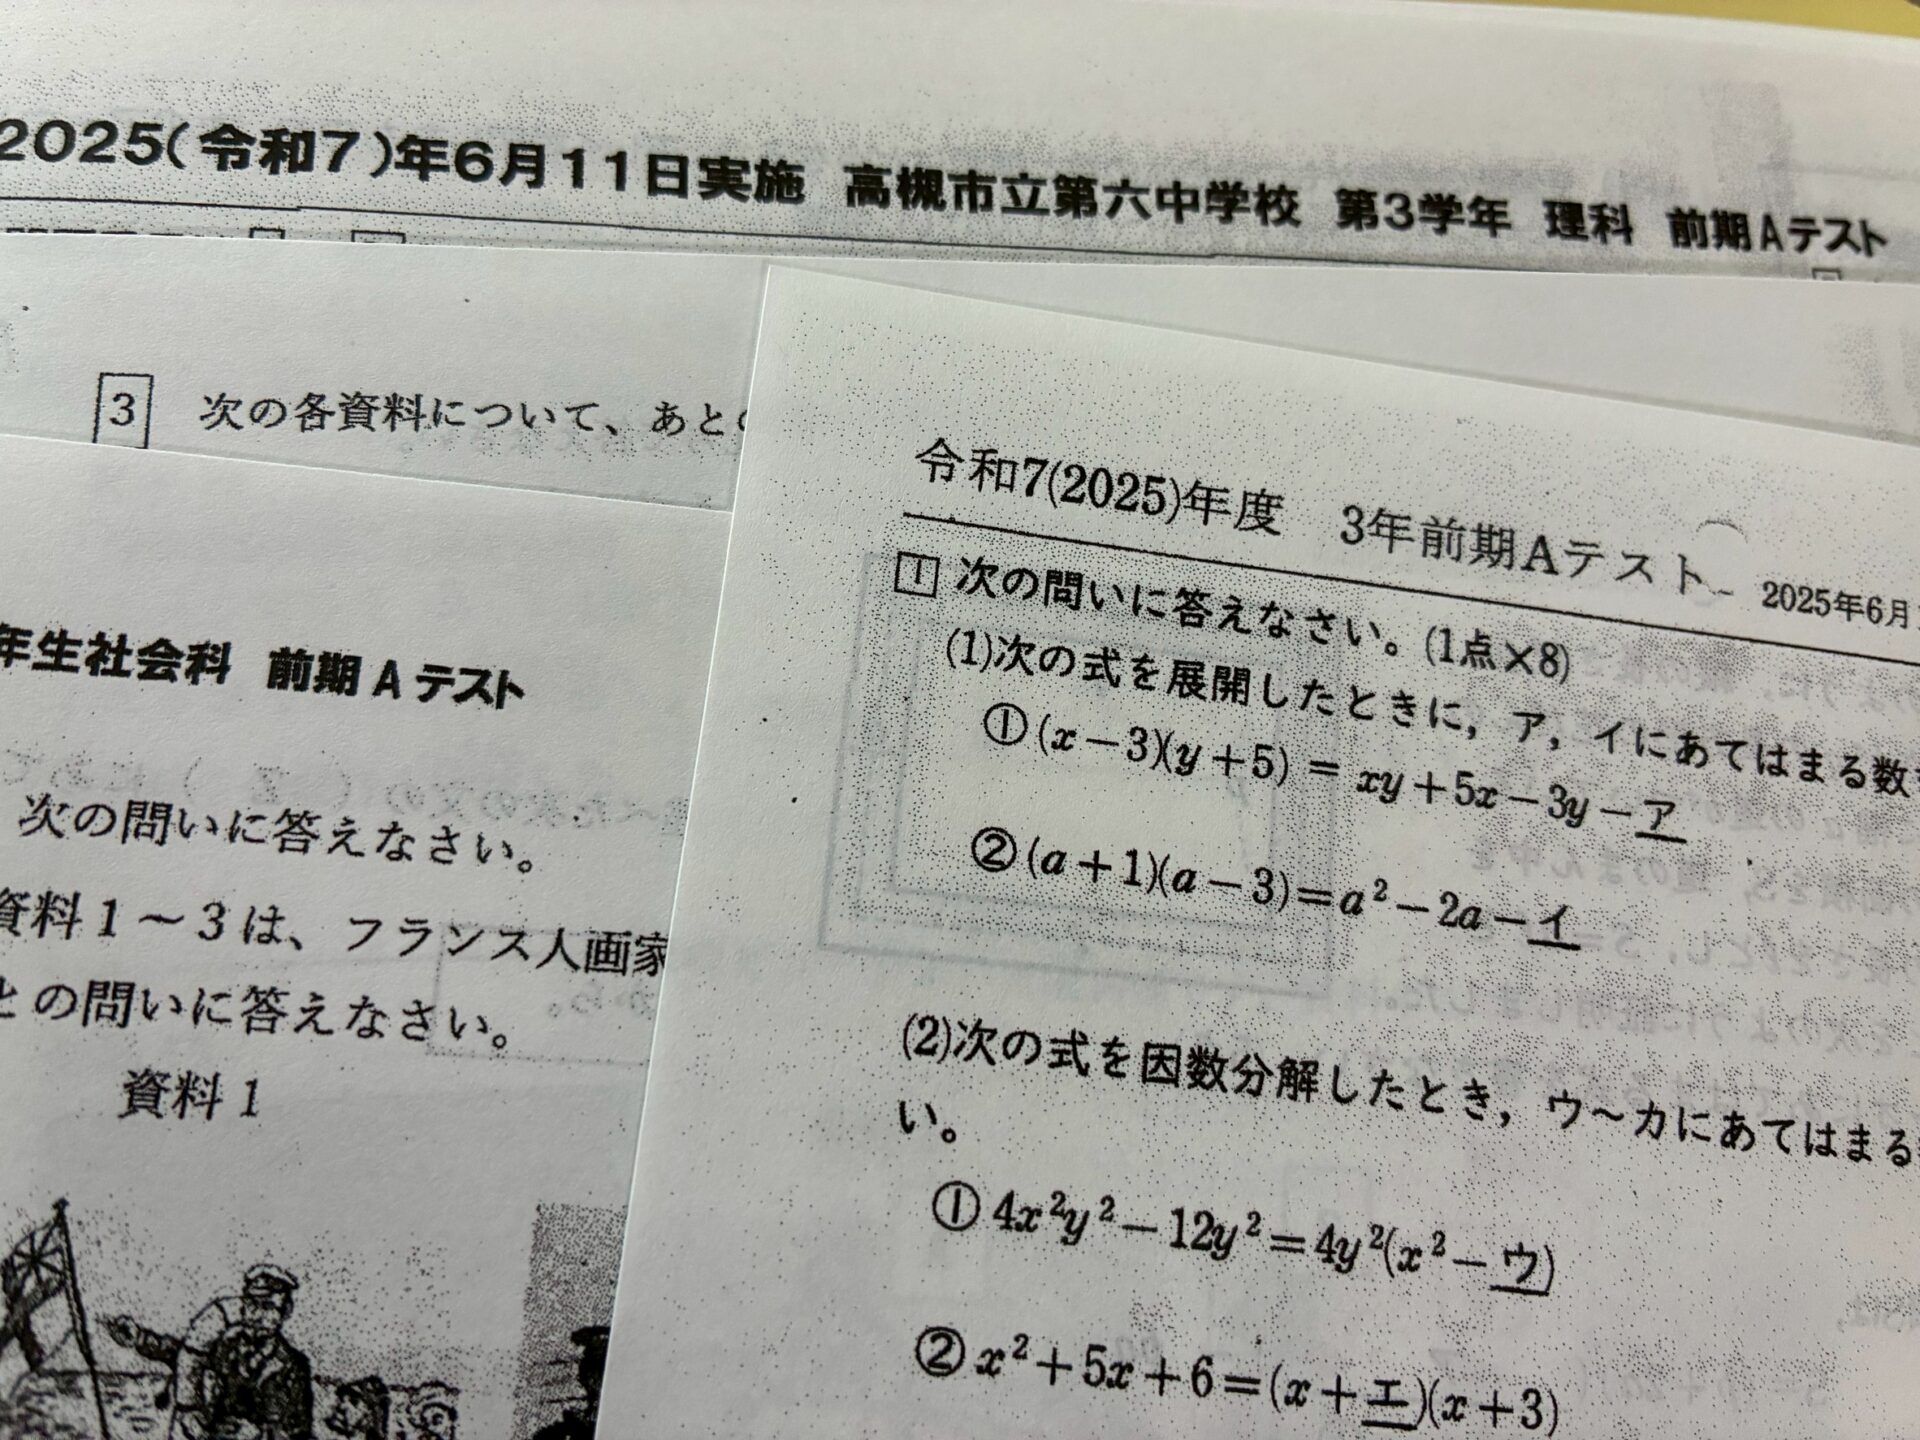 2025(令和7)年6月11日実施 高槻市立第六中学校 第3学年 理科 前期Aテスト
3 次の各資料について、あと
年生社会科 前期Aテスト
次の問いに答えなさい。
資料1～3は、フランス人画家
との問いに答えなさい。
資料1
令和7(2025)年度 3年前期Aテスト 2025年6月
1 次の問いに答えなさい。(1点×8)
(1)次の式を展開したときに，ア，イにあてはまる数
①(x－3)(y＋5)＝xy＋5x－3y－ア
②(a＋1)(a－3)＝a²－2a－イ
(2)次の式を因数分解したとき，ウ～カにあてはまる
い。
①4x²y²－12y²＝4y²(x²－ウ)
②x²＋5x＋6＝(x＋エ)(x＋3)